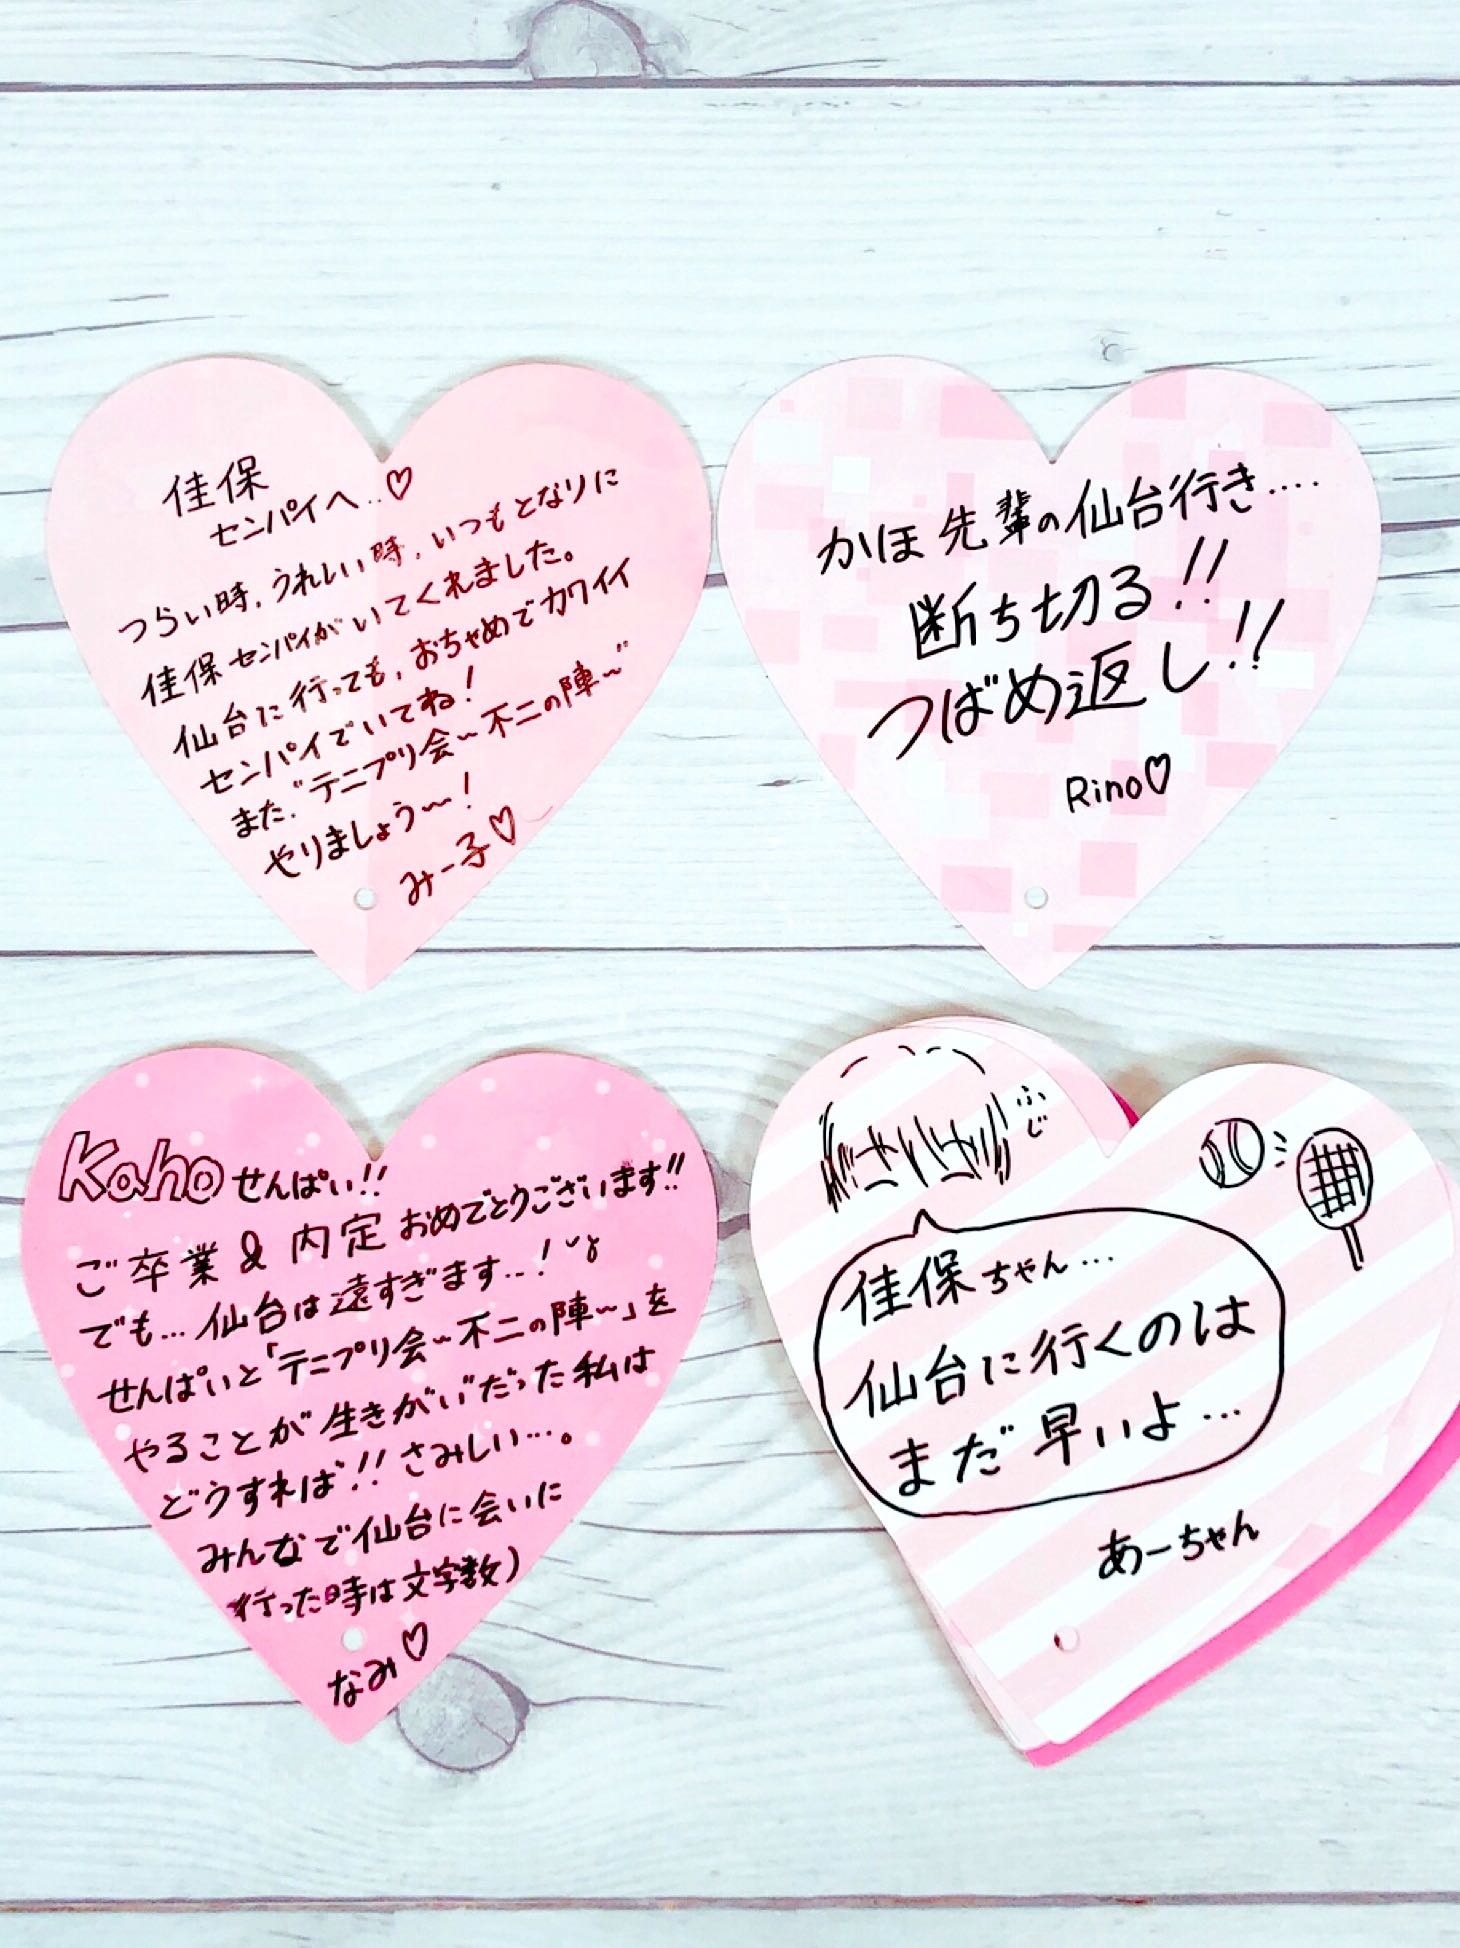 佳保
センパイへ…♡
つらい時、うれしい時、いつもとなりに
佳保センパイがいてくれました。
仙台に行っても、おちゃめでカワイイ
センパイでいてね！
また、"テニプリ会〜不二の陣〜"
やりましょう〜！
みー子♡
かほ先輩の仙台行き‥‥
断ち切る!!
つばめ返し!!
Rino♡
Kahoせんぱい!!
ご卒業&内定おめでとうございます!!
でも…仙台は遠すぎます…！
せんぱいと「テニプリ会〜不二の陣〜」を
やることが生きがいだった私は
どうすれば!!さみしい…。
みんなで仙台に会いに
行った時は文字数)
なみ♡
ふじ
佳保ちゃん…
仙台に行くのは
まだ早いよ…
あーちゃん